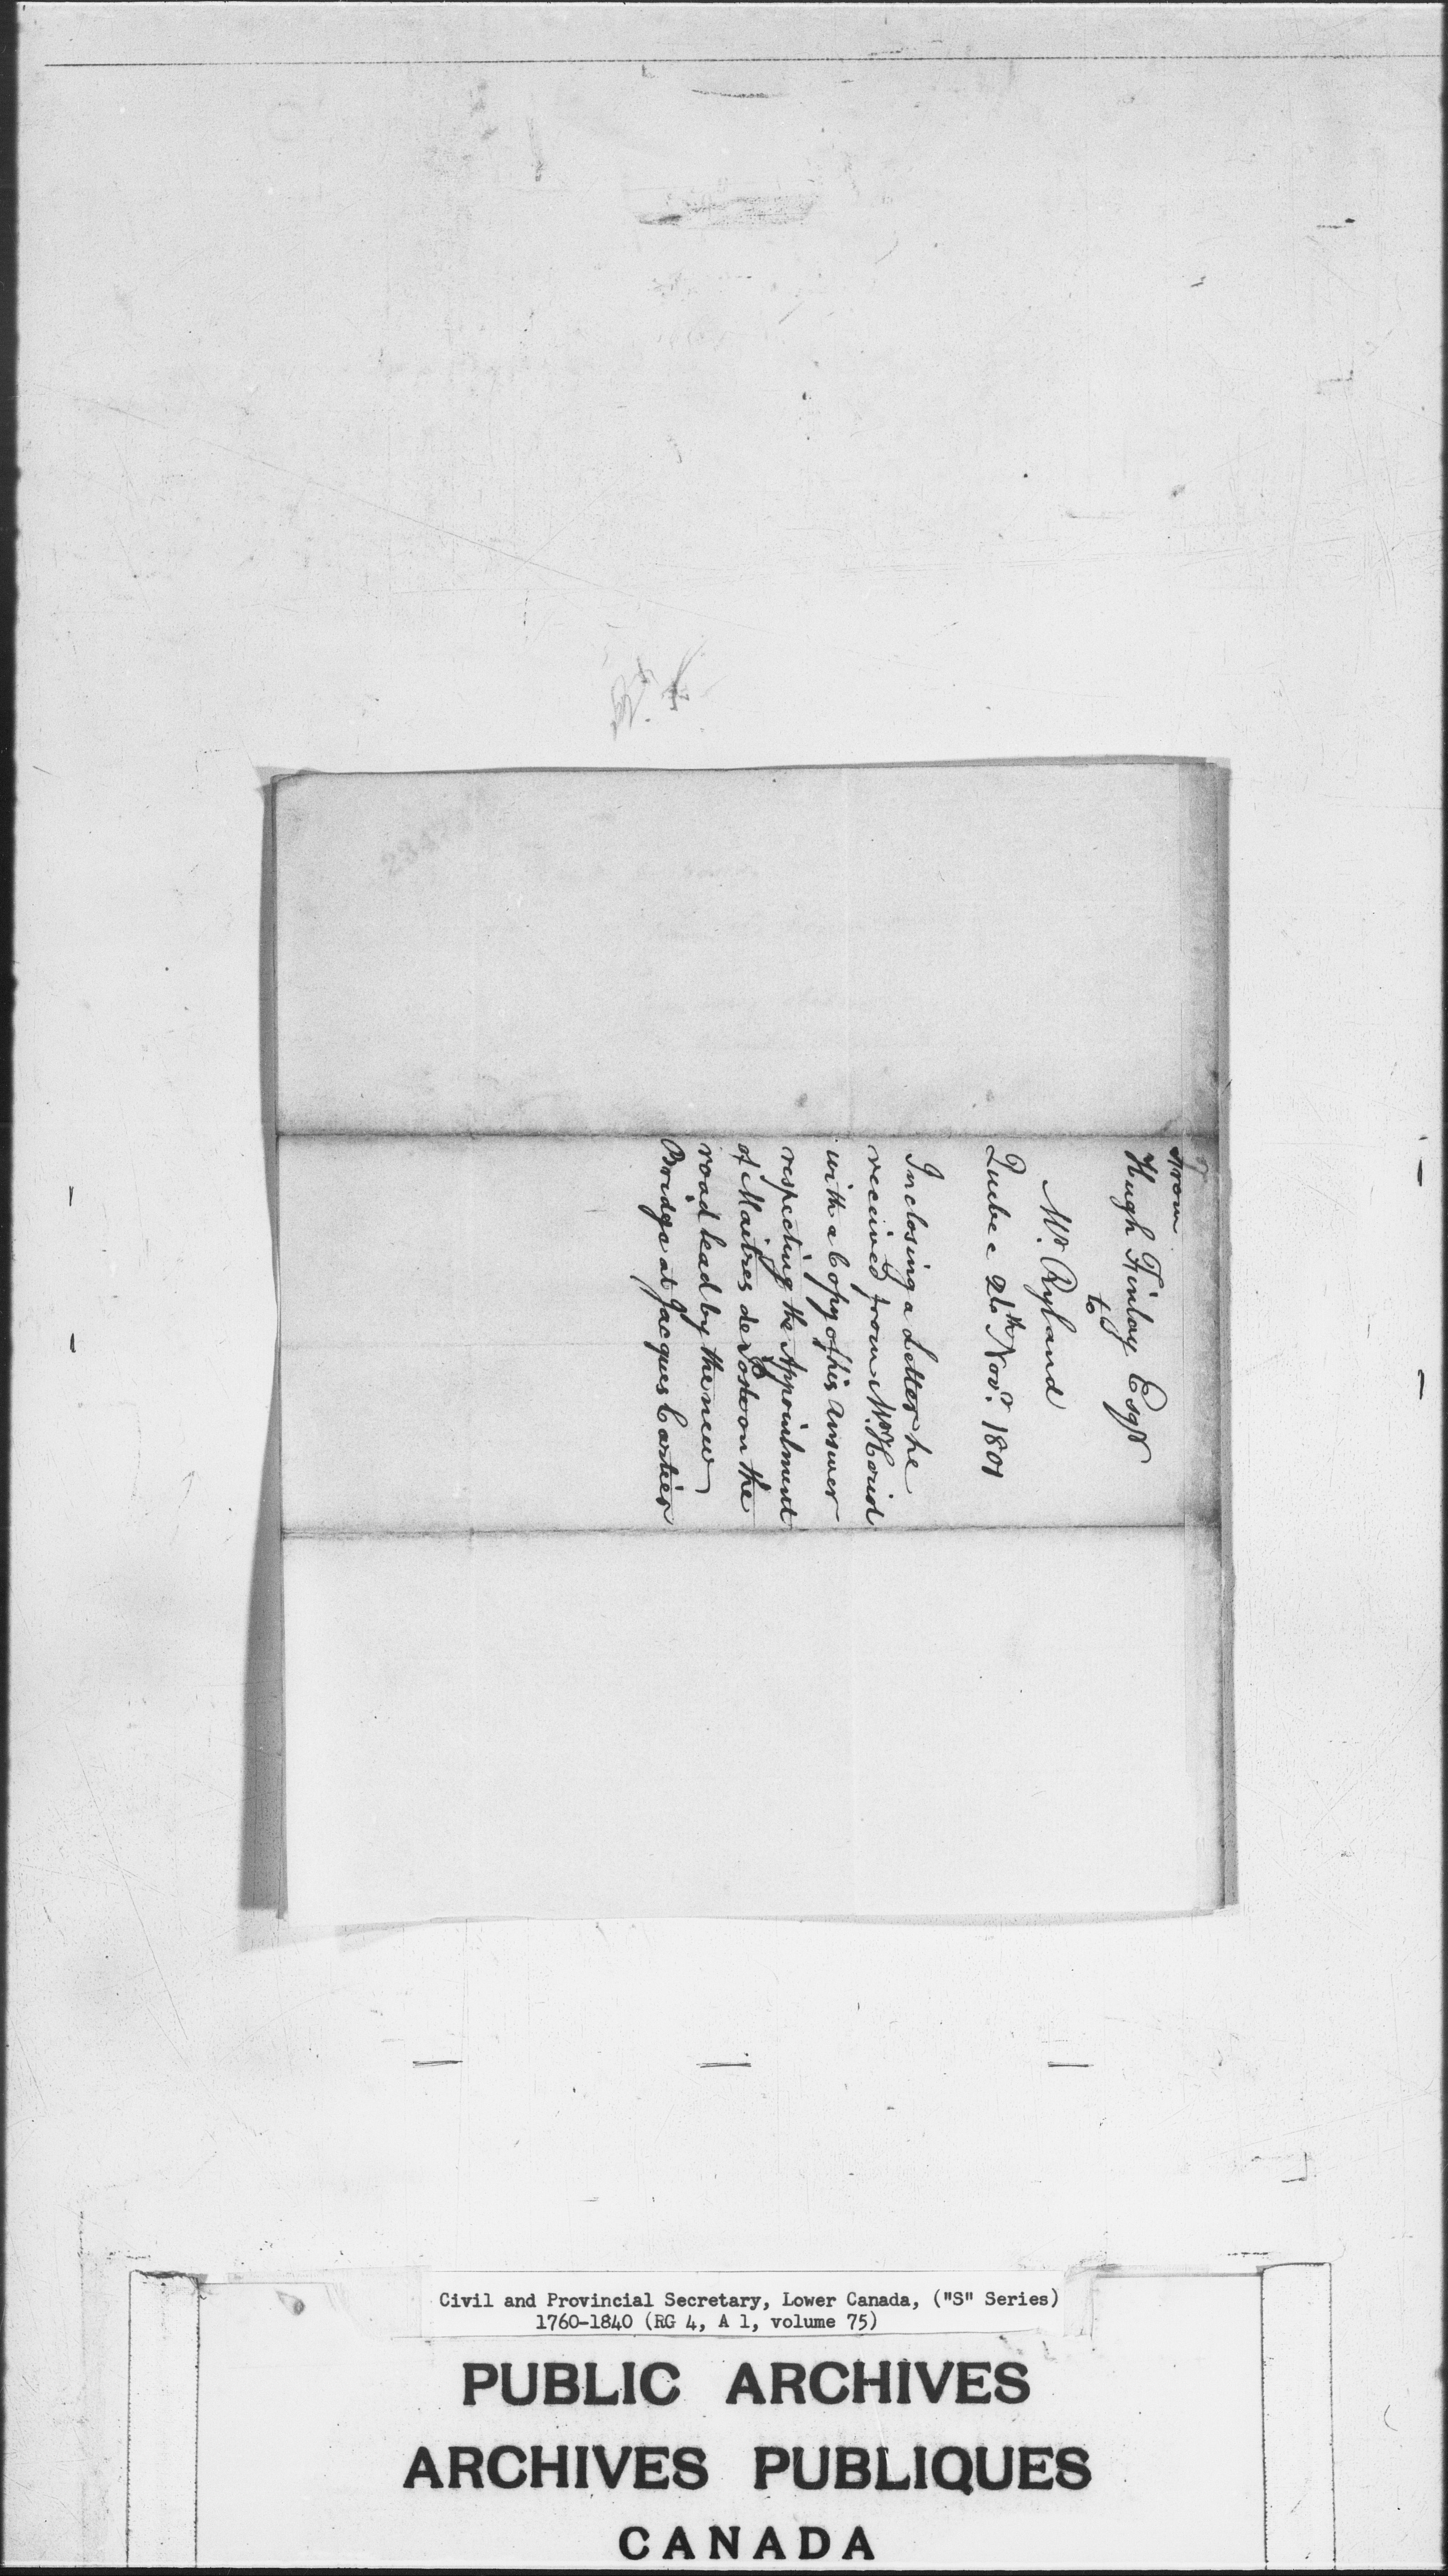 From
Hugh Finlay Esqr
to
Mr. Ryland
Quebec 26th Novr. 1801
Inclosing a Letter he
received from Mr.
with a Copy of his answer
respecting the Appointment
of Maitres de Poste on the
road lead by the new
Bridge at Jacques Cartier
Civil and Provincial Secretary, Lower Canada, ("S" Series)
1760-1840 (RG 4, A 1, volume 75)
PUBLIC ARCHIVES
ARCHIVES PUBLIQUES
CANADA